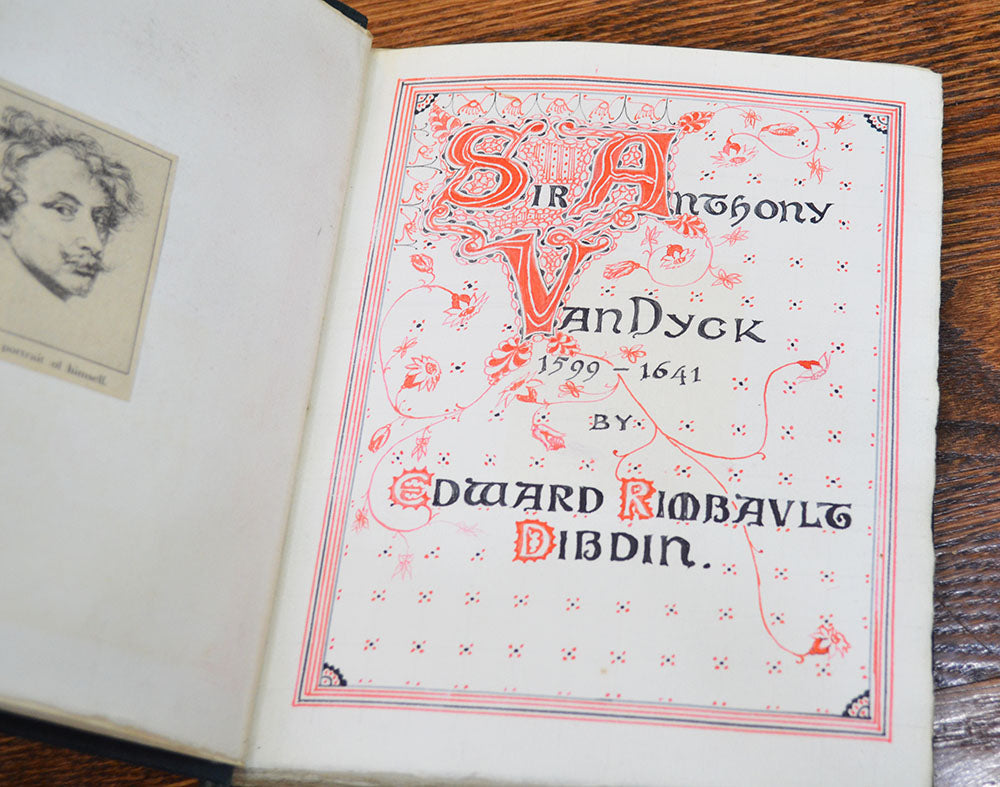 portrait of himself.
Sir Anthony
Van Dyck
1599 - 1641
BY
Edward Rimbault
Dibdin.